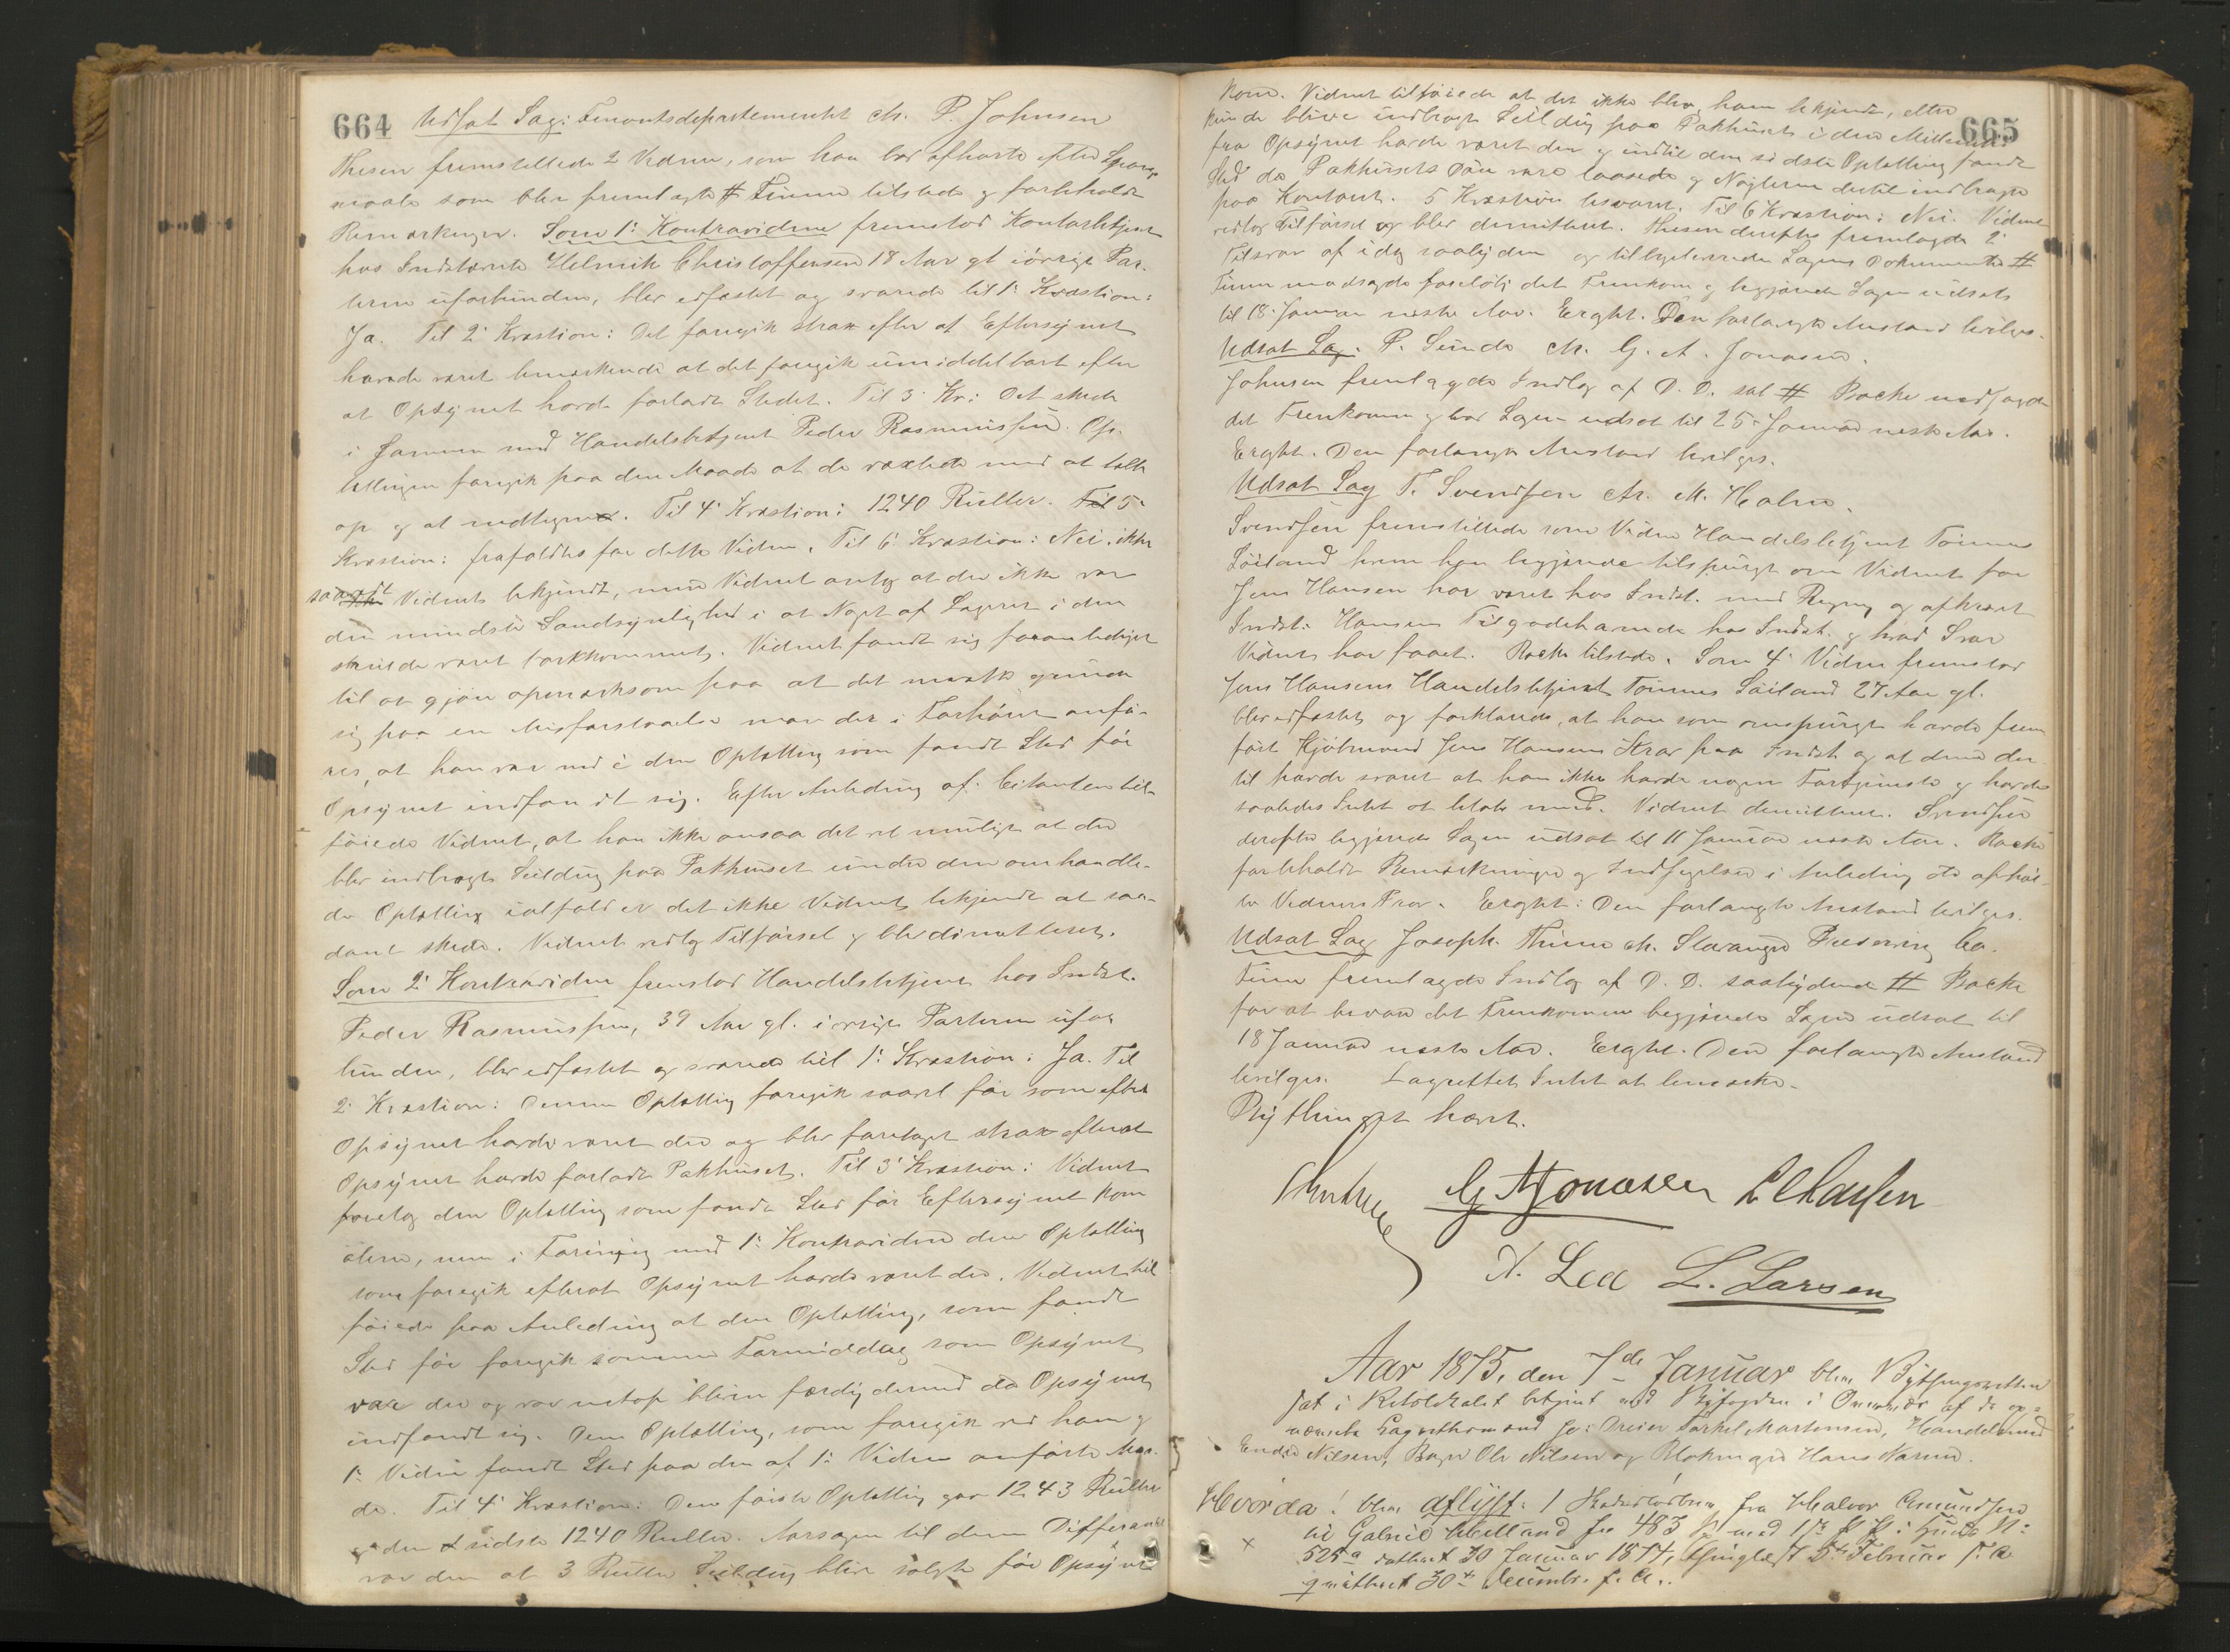 664
Udsat Sag: Finantsdepartementet ctr. P. Johnsen
Thesen fremstillede 2 Vidner, som han bad afhørte efter Spørgs
maale som blev fremlagte # Finne tilstede og forbeholdt
Bemærkninger. Som 1ste Kontravidne fremstod Kontorbetjent
hos Indstevnte Helmik Christoffersen 18 Aar gl iøvrigt Par-
terne uforbunden, blev edfæstet og svarede til 1ste Kvæstion:
Ja. Til 2 Kvæstion: Det foregik strax efter at Eftersynet
havde været bemærkende at det foregik umiddelbart efter
at Opsynet havde forladt Stedet. Til 3 Kv: Det skede
i Sammen med Handelsbetjent Peder Rasmussen. Op-
tællingen foregik paa den Maade at de vexlede med at tælle
op og at nedtegne. Til 4 Kvæstion: 1240 Ruller. Til 5
Kvæstion: frafaldtes for dette Vidne. Til 6 Kvæstion: Nei, ikke
saavidt Vidnet bekjendt, men Vidnet antog at der ikke var
den mindste Sandsynlighed i at Noget af Lageret i den
skulde været bortkommet. Vidnet fandt sig foranlediget
til at gjøre opmærksom paa at det maatte grunde
sig paa en Misforstaaelse naar der i Forhøret anfø-
res, at han var med i den Optælling som fandt Sted før
Opsynet indfandt sig. Efter Anledning af Citanten til-
føiede Vidnet, at han ikke ansaa det vel muligt at der
blev indbragt Seildug paa Pakhuset under den omhandle-
de Optælling ialfald er det ikke Vidnet bekjendt at saa-
dant skede. Vidnet vedtog Tilførsel og blev dimitteret.
Som 2 Kontravidne fremstod Handelsbetjent hos Indst.
Peder Rasmussen, 39 Aar gl. iøvrigt Parterne ufor
bunden, blev edfæstet og svarede til 1ste Kvæstion: Ja. Til
2 Kvæstion: Denne Optælling foregik saavel før som efter
Opsynet havde været der og blev foretaget strax efterat
Opsynet havde forladt Pakhuset. Til 3 Kvæstion: Vidnet
foretog den Optælling som fandt Sted før Eftersynet kom
alene, men i Forening med 1ste Kontravidne den Optælling
som foregik efterat Opsynet havde været der. Vidnet til
føiede paa Anledning at den Optælling, som fandt
Sted før foregik samme Formiddag som Opsynet
var der og var netop bleven færdig dermed da Opsynet
indfandt sig. Den Optælling, som foregik ved ham og
1ste Vidne fandt Sted paa den af 1ste Vidne anførte Maa-
de. Til 4 Kvæstion: Den første Optælling gav 1243 Ruller
og den sidste 1240 Ruller. Aarsagen til denne Differance
var den at 3 Ruller Seildug blev solgt før Opsynet
665
kom. Vidnet tilføiede at det ikke blev ham bekjendt, eller
kunde blive indbragt Seildug paa Pakhuset i den Mellemtid
fra Opsynet havde været der og indtil den sidste Optælling fandt
Sted da Pakhusets Døre vare laasede og Nøglerne dertil indbragte
paa Kontoret. 5 Kvæstion besvaret. Til 6 Kvæstion: Nei. Vidnet
vedtog Tilførsel og blev dimitteret. Thesen derefter fremlagde 2
Tilsvar af idag saalydende og tilbageleverede Sagens Dokumenter #
Finne modsagde foreløbig det Fremkomne og begjærede Sagen udsat
til 18 Januar næste Aar. Eragt. Den forlangte Anstand bevilges.
Udsat Sag. P. Sunde ctr. G. A. Jonasen.
Johnsen fremlagde Indlæg af D. D. sal # Racke modsagde
det Fremkomne og bad Sagen udsat til 25 Januar næste Aar.
Eragt. Den forlangte Anstand bevilges.
Udsat Sag T. Svendsen ctr. M. Holm.
Svendsen fremstillede som Vidne Handelsbetjent Tønnes
Søiland hvem han begjærede tilspurgt om Vidnet for
Jens Hansen har været hos Indst. med Regning og afkrævet
Indst. Hansens Tilgodehavende hos Indst. og hvad Svar
Vidnet har faaet. Racke tilstede. Som 4 Vidne fremstod
Jens Hansens Handelsbetjent Tønnes Søiland 27 Aar gl.
blev edfæstet og forklarede, at han som omspurgt havde frem
ført Kjøbmand Jens Hansens Krav paa Indst og at denne der
til havde svaret at han ikke havde nogen Fortjeneste og havde
saaledes Intet at betale med. Vidnet dimitteret. Svendsen
derefter begjærede Sagen udsat til 11 Januar næste Aar. Racke
forbeholdt Bemærkninger og Indsigelser i Anledning de afhør-
te Vidners Prov. Eragt: Den forlangte Anstand bevilges.
Udsat Sag Joseph Thime ctr. Stavanger Preserving Co.
Finne fremlagde Indlæg af D. D. saalydende # Racke
for at besvare det Fremkomne begjærede Sagen udsat til
18 Januar næste Aar. Eragt. Den forlangte Anstand
bevilges. Lagrettet Intet at bemærke.
Bythinget hævet.
G A Jonassen L Clausen
N. Lea L. Larsen
Aar 1875, den 7de Januar blev Bythingsretten
sat i Retslokalet betjent med Byfogden i Overvær af de op-
nævnte Lagrettemænd Go: Dreier Torkel Martensen, Handelsmand
Endre Nilsen, Bager Ole Nilsen og Blokmager Hans Narum.
Hvorda: blev aflyst: 1 Skadesløsbrev fra Halvor Amundsen
til Gabriel Helland for 483 Sp med 1ste P P i Huus No
525a dateret 30 Januar 1874, thinglæst 5te Februar s. A
qvitteret 30te Decembr. f. A.